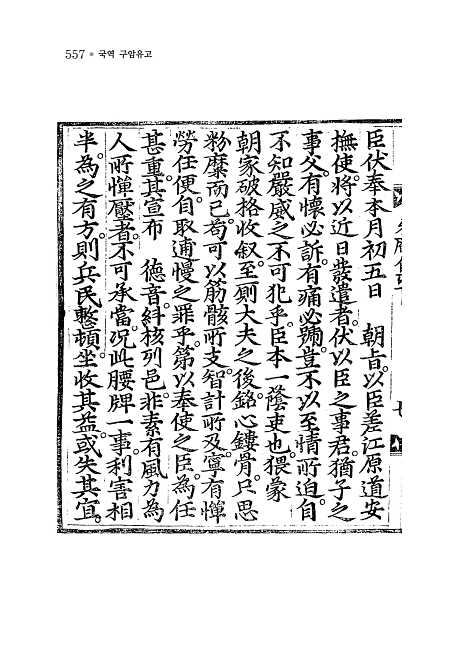 557 ● 국역 구암유고
臣伏奉本月初五日 朝旨。以臣差江原道安
撫使。將以近日發遣者。伏以臣之事君。猶子之
事父。有懷必訴。有痛必號。豈不以至情所迫。自
不知嚴威之不可犯乎。臣本一蔭吏也。猥蒙
朝家破格收叙。至厠大夫之後。銘心鏤骨。只思
粉糜而已。苟可以筋骸所支。智計所及。寧有憚
勞任便。自取逋慢之罪乎。第以奉使之臣。爲任
甚重。其宣布 德音。糾核列邑。非素有風力爲
人所憚壓者。不可承當。况此腰牌一事。利害相
半。爲之有方。則兵民整頓。坐收其益。或失其宜。